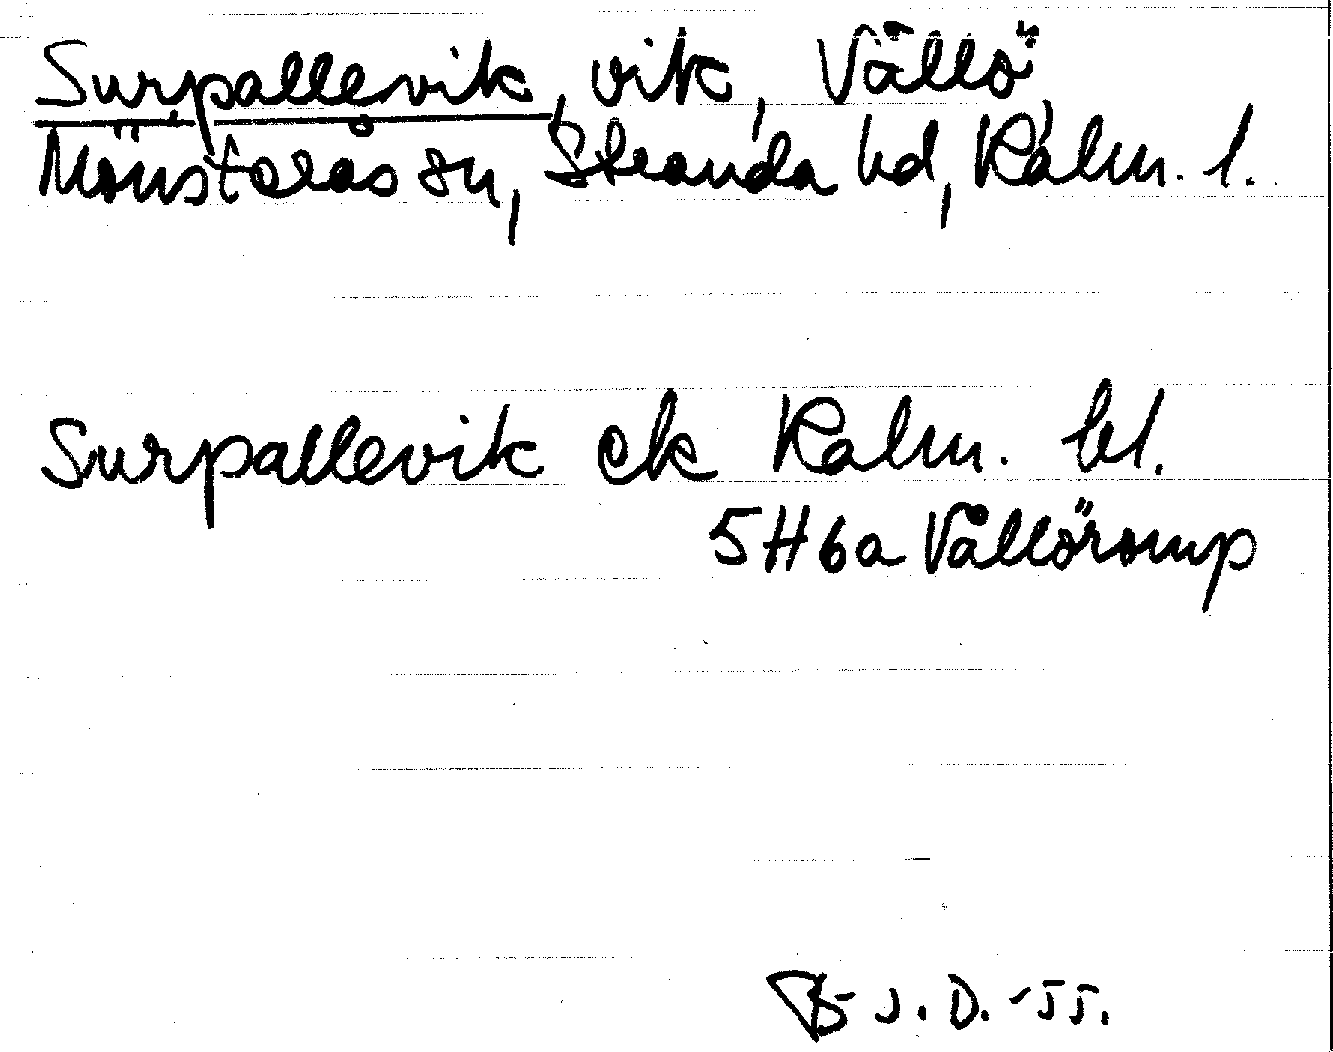 Surpallevik, vik, Vållö
Mönsterås sn, Stranda hd, Kalm. l.
Surpallevik ek Kalm. bl.
5H6a Vållöromp
B-J.D.-55.